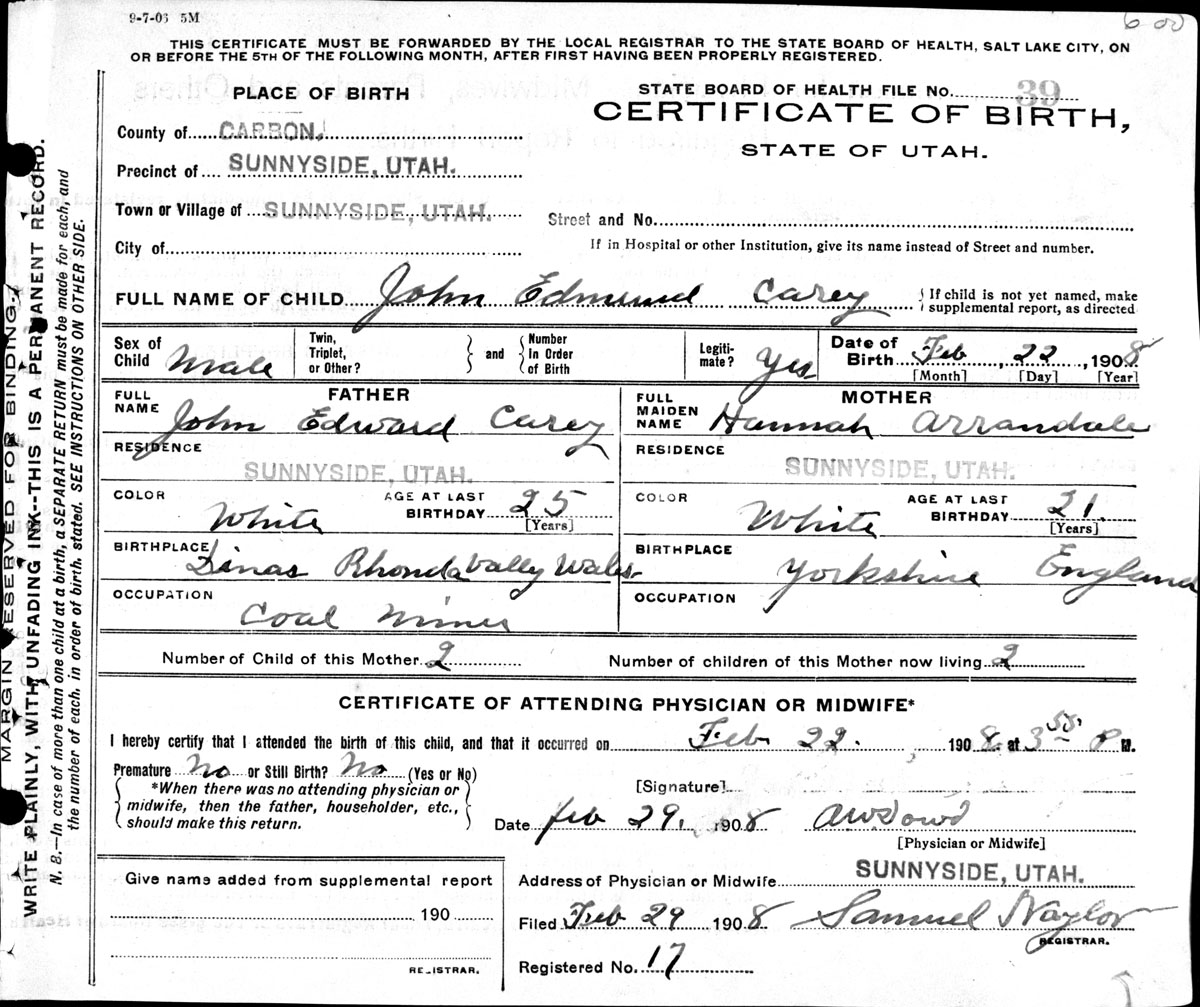 9-7-06 5M
600
THIS CERTIFICATE MUST BE FORWARDED BY THE LOCAL REGISTRAR TO THE STATE BOARD OF HEALTH, SALT LAKE CITY, ON
OR BEFORE THE 5TH OF THE FOLLOWING MONTH, AFTER FIRST HAVING BEEN PROPERLY REGISTERED.
MARGIN RESERVED FOR BINDING.
WRITE PLAINLY, WITH UNFADING INK--THIS IS A PERMANENT RECORD.
N. B.—In case of more than one child at a birth, a SEPARATE RETURN must be made for each, and
the number of each, in order of birth, stated. SEE INSTRUCTIONS ON OTHER SIDE.
PLACE OF BIRTH
STATE BOARD OF HEALTH FILE NO. 39
CERTIFICATE OF BIRTH,
STATE OF UTAH.
County of CARBON.
Precinct of SUNNYSIDE, UTAH.
Town or Village of SUNNYSIDE, UTAH.
Street and No.
City of
If in Hospital or other Institution, give its name instead of Street and number.
FULL NAME OF CHILD John Edmund Carey
{ If child is not yet named, make
supplemental report, as directed
Sex of Child Male
Twin, Triplet, or Other? } and { Number In Order of Birth
Legiti-mate? Yes
Date of Birth Feb, 22, 1908
[Month] [Day] [Year]
FATHER
FULL NAME John Edward Carey
MOTHER
FULL MAIDEN NAME Hannah Arrandale
RESIDENCE
SUNNYSIDE, UTAH.
RESIDENCE
SUNNYSIDE, UTAH.
COLOR White
AGE AT LAST BIRTHDAY 25
[Years]
COLOR White
AGE AT LAST BIRTHDAY 21.
[Years]
BIRTHPLACE Dinas Rhonda Vally Wales
BIRTHPLACE Yorkshire England
OCCUPATION Coal Miner
OCCUPATION
Number of Child of this Mother 2
Number of children of this Mother now living 2
CERTIFICATE OF ATTENDING PHYSICIAN OR MIDWIFE*
I hereby certify that I attended the birth of this child, and that it occurred on Feb 22. , 1908. at 3 55 P M.
Premature No or Still Birth? No (Yes or No)
{ *When there was no attending physician or
midwife, then the father, householder, etc.,
should make this return. }
[Signature]
Date Feb 29. 1908 AW Dowd
[Physician or Midwife]
Give name added from supplemental report
190
REGISTRAR.
Address of Physician or Midwife SUNNYSIDE, UTAH.
Filed Feb 29 1908 Samuel Naylor
REGISTRAR.
Registered No. 17